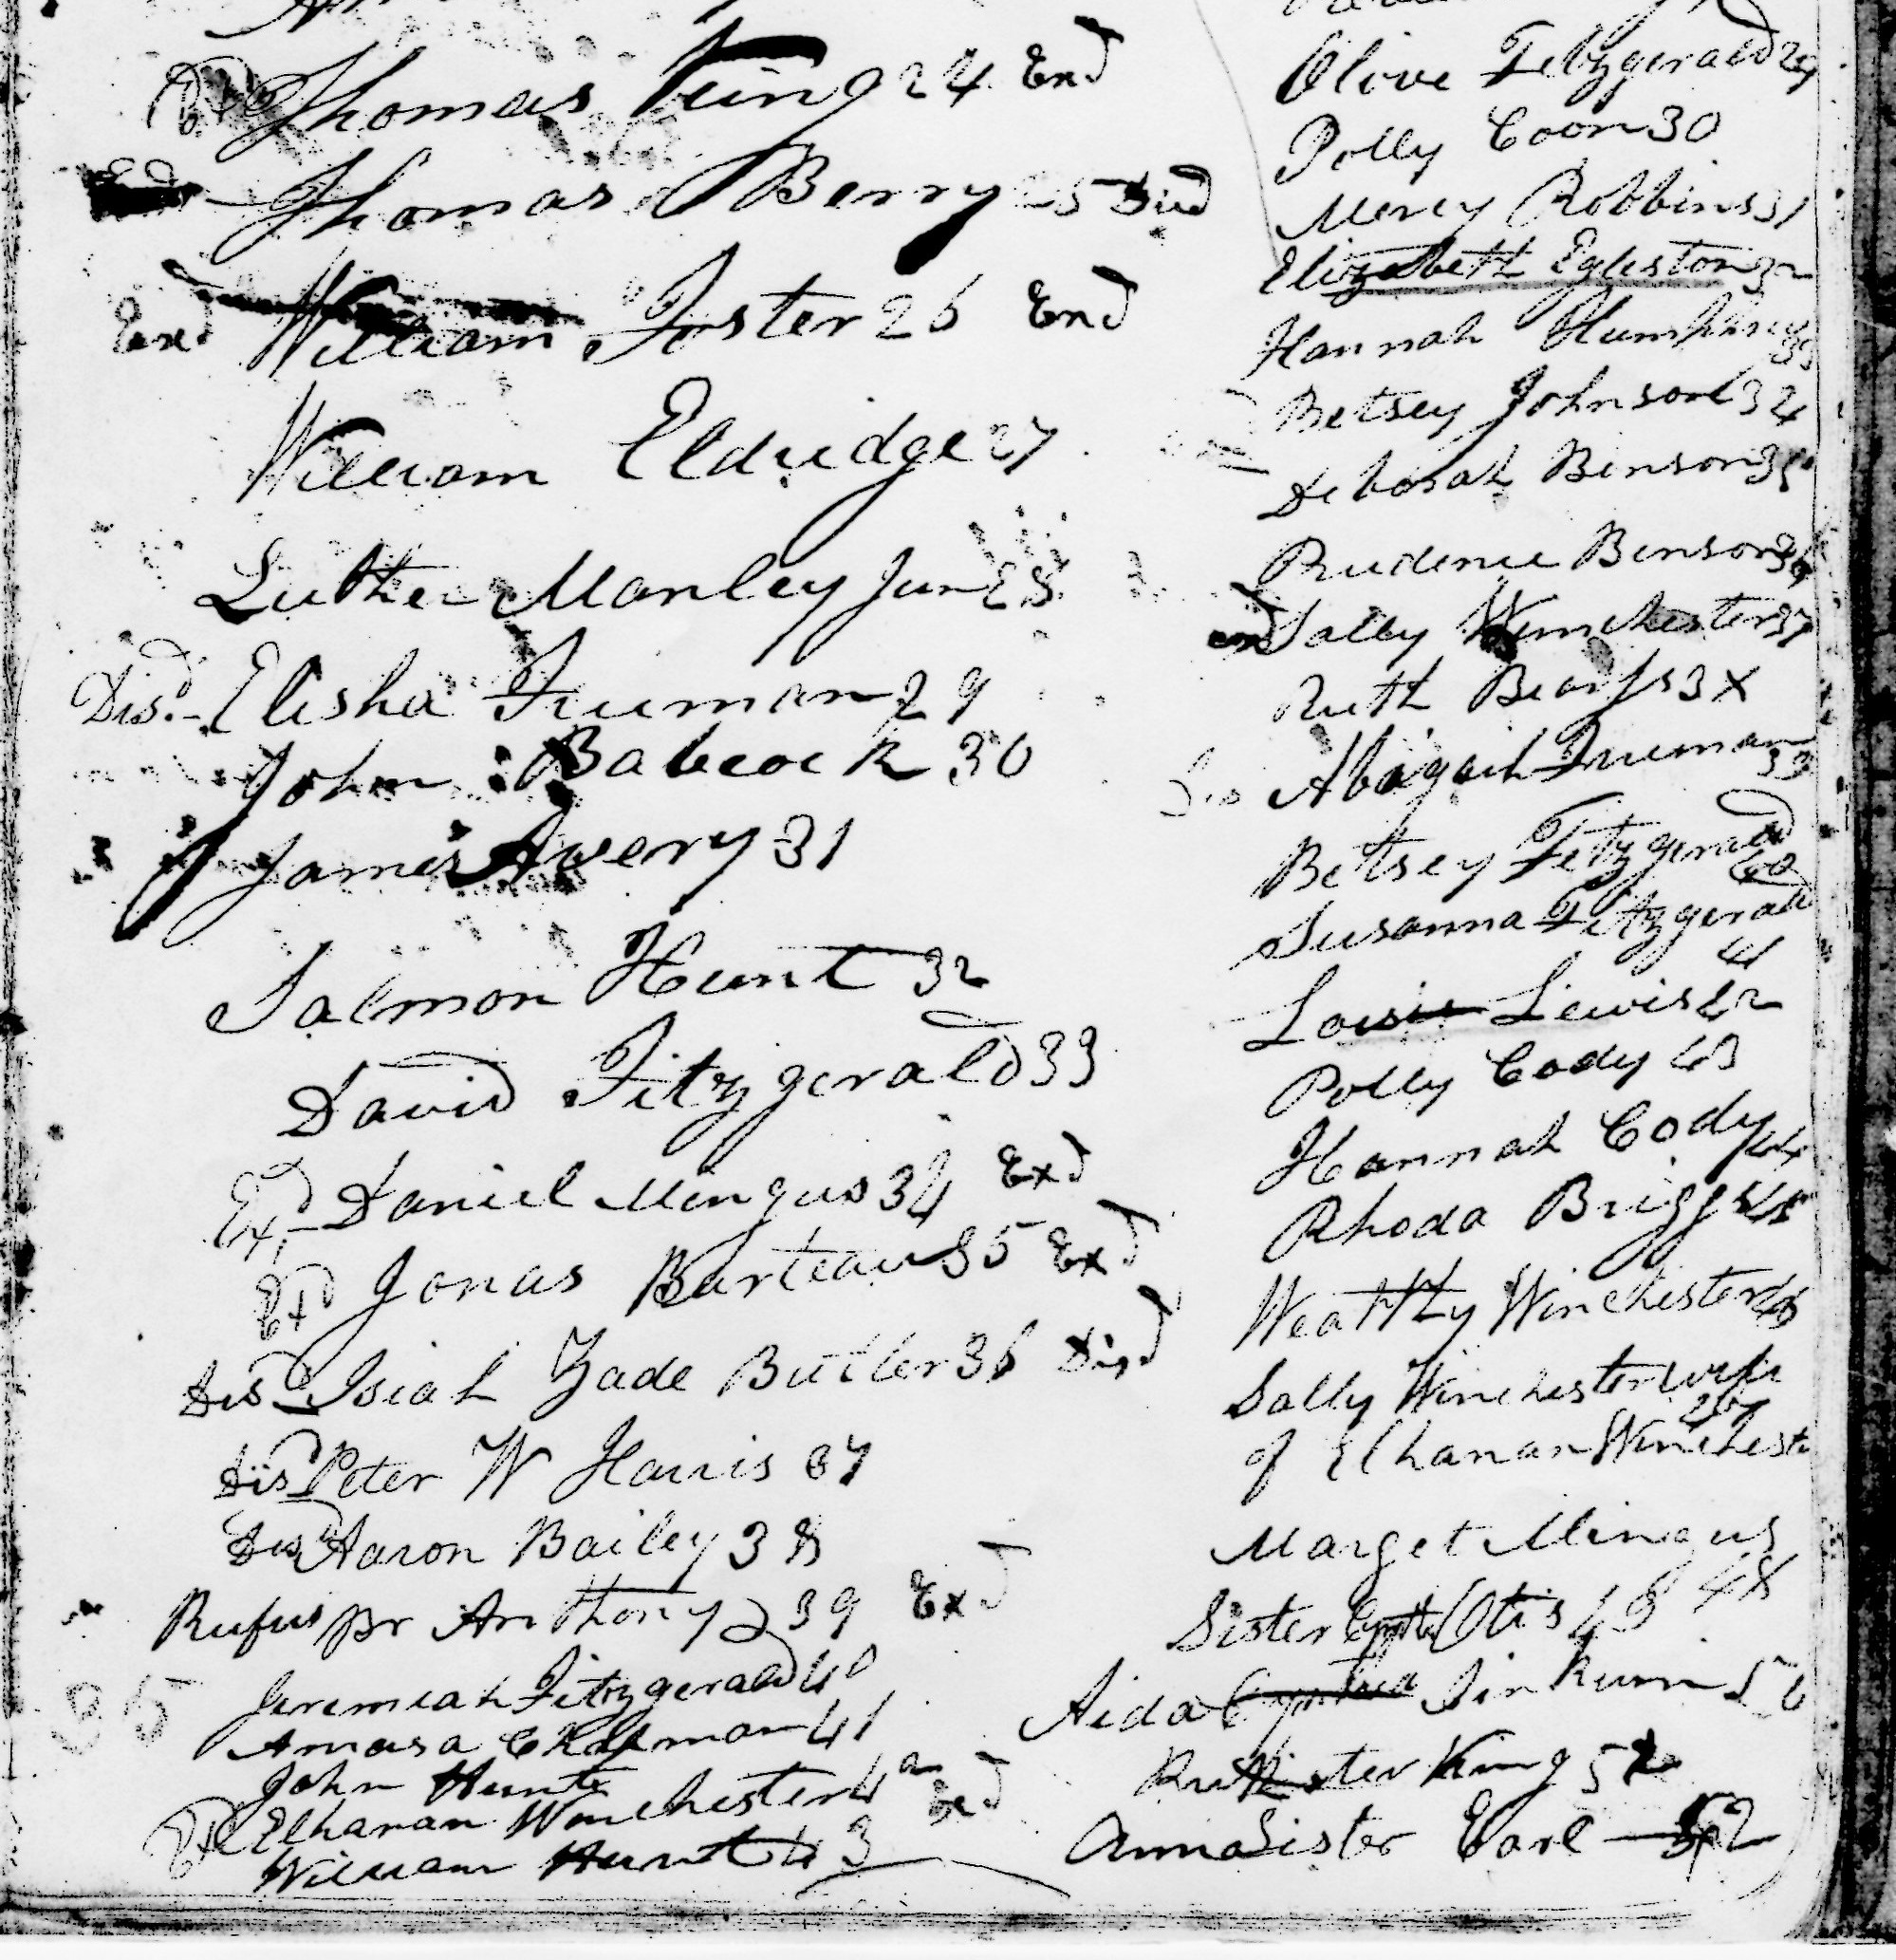 Thomas King 24 Exd
Thomas Berry 25 Did
Exd William Foster 26 Exd
William Eldridge 27
Luther Manley Jun 28
Disd Elisha Truman 29
John Babcock 30
James Avery 31
Salmon Hunt 32
David Fitzgerald 33
Exd Daniel Mingus 34 Exd
Exd Jonas Barteau 35 Exd
Disd Isiah Gade Butler 36 Disd
Disd Peter W Harris 37
Disd Aaron Bailey 38
Rufus Br Anthony 39 Exd
35
Jeremiah Fitzgerald 40
Amasa Chapman 41
John Hunt
Exd Elhanan Winchester 42 Exd
William Hunt 43
Olive Fitzgerald 29
Polly Coon 30
Mercy Robbins 31
Elizabeth Egleston 32
Hannah Humphrey 33
Betsey Johnson 34
Deborah Benson 35
Prudence Benson 36
Sally Winchester 37
Ruth 38
Dis Abagail Truman 39
Betsey Fitzgerald
40
Susanna Fitzgerald
41
Lewis 42
Polly Cody 43
Hannah Cody 44
Rhoda Briggs 45
Wealthy Winchester 46
Sally Winchester wife
47
of Elhanan Winchester
Marget Mingus
48
Sister Otis 49
Aida Cynthia Sinkum 50
Ruth Sister King 51
Anna Sister Earl 52